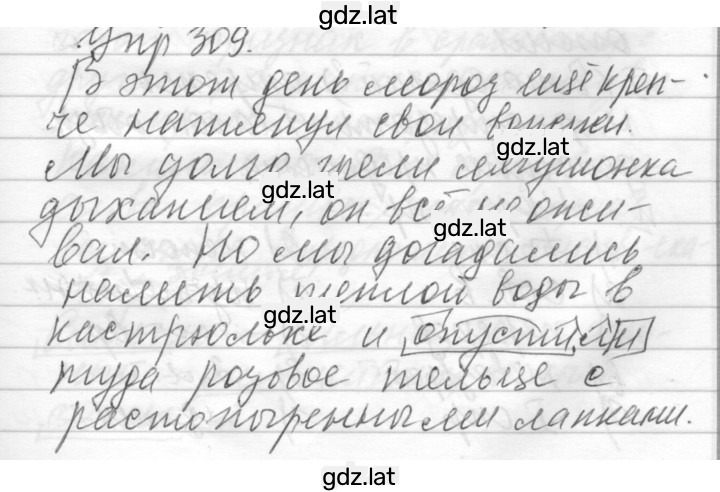 gdz.lat
Упр 309.
В этот день мороз ещё креп-
че натянул свои вожжи.
Мы долго грели лягушонка
gdz.lat
дыханием, он всё не ожи-
gdz.lat
вал. Но мы догадались
налить тёплой воды в
gdz.lat
кастрюльке и опустили
туда розовое тельце с
растопыренными лапками.
gdz.lat